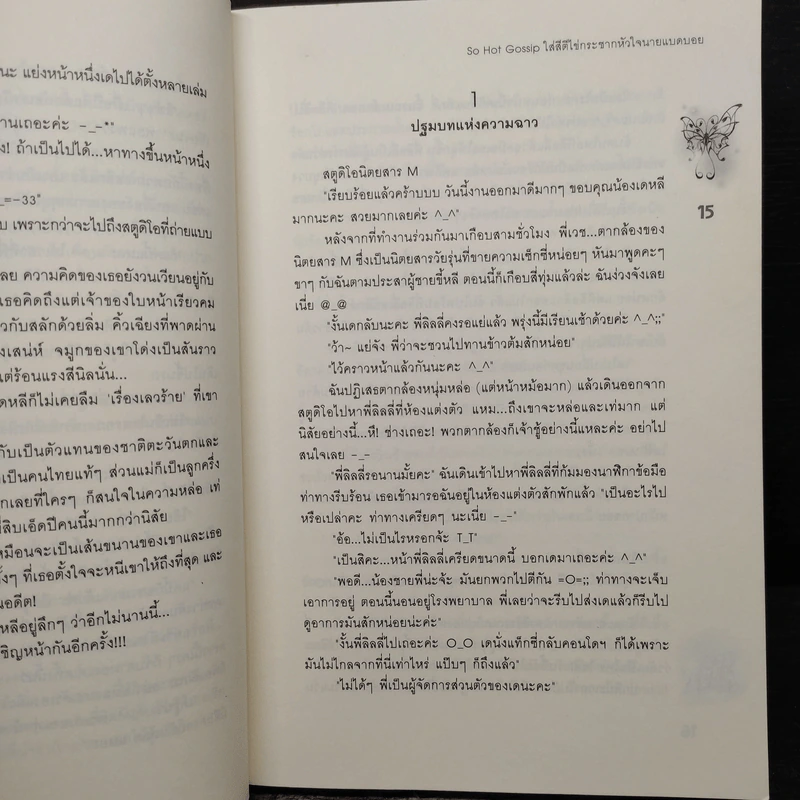 นะ แย่งหน้าหนึ่งเดไปได้ตั้งหลายเล่ม
านเถอะค่ะ -_-*"
ง! ถ้าเป็นไปได้...หาทางขึ้นหน้าหนึ่ง
_=-33"
บ เพราะกว่าจะไปถึงสตูดิโอที่ถ่ายแบบ
ลย ความคิดของเธอยังวนเวียนอยู่กับ
เธอคิดถึงแต่เจ้าของใบหน้าเรียวคม
วกับสลักด้วยลิ่ม คิ้วเฉียงที่พาดผ่าน
งเสน่ห์ จมูกของเขาโด่งเป็นสันราว
แต่ร้อนแรงสีนิลนั่น...
ดหลีก็ไม่เคยลืม 'เรื่องเลวร้าย' ที่เขา
กับเป็นตัวแทนของชาติตะวันตกและ
เป็นคนไทยแท้ๆ ส่วนแม่ก็เป็นลูกครึ่ง
กเลยที่ใครๆ ก็สนใจในความหล่อ เท่
สิบเอ็ดปีคนนี้มากกว่านิสัย
หมือนจะเป็นเส้นขนานของเขาและเธอ
ทั้งๆ ที่เธอตั้งใจจะหนีเขาให้ถึงที่สุด และ
นอดีต!
หลีอยู่ลึกๆ ว่าอีกไม่นานนี้...
ชิญหน้ากันอีกครั้ง!!!
So Hot Gossip ใส่สีตีไข่กระชากหัวใจนายแบดบอย
1
ปฐมบทแห่งความฉาว
15
สตูดิโอนิตยสาร M
"เรียบร้อยแล้วคร้าบบบ วันนี้งานออกมาดีมากๆ ขอบคุณน้องเดหลี
มากนะคะ สวยมากเลยค่ะ ^_^"
หลังจากที่ทำงานร่วมกันมาเกือบสามชั่วโมง พี่เวช...ตากล้องของ
นิตยสาร M ซึ่งเป็นนิตยสารวัยรุ่นที่ขายความเซ็กซี่หน่อยๆ หันมาพูดคะๆ
ขาๆ กับฉันตามประสาผู้ชายขี้หลี ตอนนี้ก็เกือบสี่ทุ่มแล้วล่ะ ฉันง่วงจังเลย
เนี่ย @_@
"งั้นเดกลับนะคะ พี่ลิลลี่คงรอแย่แล้ว พรุ่งนี้มีเรียนเช้าด้วยค่ะ ^_^;;"
"ว้า~ แย่จัง พี่ว่าจะชวนไปทานข้าวต้มสักหน่อย"
"ไว้คราวหน้าแล้วกันนะคะ ^_^"
ฉันปฏิเสธตากล้องหนุ่มหล่อ (แต่หน้าหม้อมาก) แล้วเดินออกจาก
สตูดิโอไปหาพี่ลิลลี่ที่ห้องแต่งตัว แหม...ถึงเขาจะหล่อและเท่มาก แต่
นิสัยอย่างนี้...หึ! ช่างเถอะ! พวกตากล้องก็เจ้าชู้อย่างนี้แหละค่ะ อย่าไป
สนใจเลย -_-
"พี่ลิลลี่รอนานมั้ยคะ" ฉันเดินเข้าไปหาพี่ลิลลี่ที่ก้มมองนาฬิกาข้อมือ
ท่าทางรีบร้อน เธอเข้ามารอฉันอยู่ในห้องแต่งตัวสักพักแล้ว "เป็นอะไรไป
หรือเปล่าคะ ท่าทางเครียดๆ นะเนี่ย -_-"
"อ้อ...ไม่เป็นไรหรอกจ้ะ T_T"
"เป็นสิคะ...หน้าพี่ลิลลี่เครียดขนาดนี้ บอกเดมาเถอะค่ะ ^_^"
"พอดี...น้องชายพี่น่ะจ้ะ มันยกพวกไปตีกัน =O=;; ท่าทางจะเจ็บ
เอาการอยู่ ตอนนี้นอนอยู่โรงพยาบาล พี่เลยว่าจะรีบไปส่งเดแล้วก็รีบไป
ดูอาการมันสักหน่อยน่ะค่ะ"
"งั้นพี่ลิลลี่ไปเถอะค่ะ O_O เดนั่งแท็กซี่กลับคอนโดฯ ก็ได้เพราะ
มันไม่ไกลจากที่นี่เท่าไหร่ แป๊บๆ ก็ถึงแล้ว"
"ไม่ได้ๆ พี่เป็นผู้จัดการส่วนตัวของเดนะคะ"